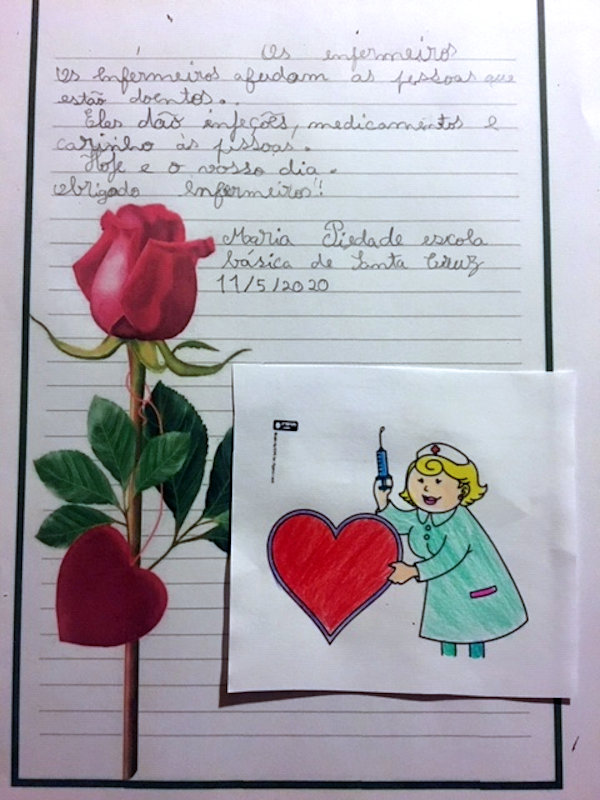 Os enfermeiros
Os Enfermeiros afudam as pessoas que
estão doentos..
Eles dão infeções, medicamentos e
carinho às pissoas.
Hoje e o vosso dia.
obrigado Enfermeiros!!
Maria Piedade escola
básica de Santa Cruz
11/5/2020